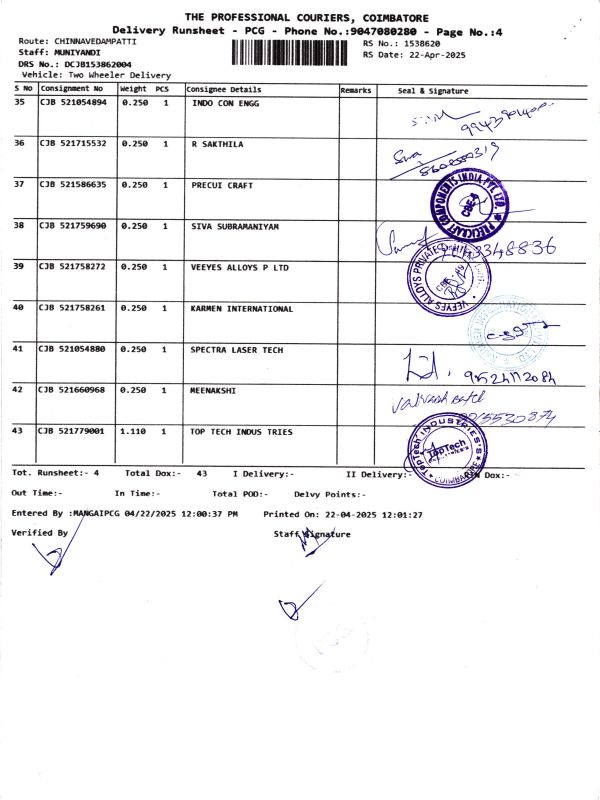 THE PROFESSIONAL COURIERS, COIMBATORE
Delivery Runsheet - PCG - Phone No.:9047080280 - Page No.:4
Route: CHINNAVEDAMPATTI
RS No.: 1538620
Staff: MUNIYANDI
RS Date: 22-Apr-2025
DRS No.: DCJB153862004
Vehicle: Two Wheeler Delivery
S No Consignment No Weight PCS Consignee Details Remarks Seal & Signature
35 CJB 521054894 0.250 1 INDO CON ENGG
36 CJB 521715532 0.250 1 R SAKTHILA
Siva
37 CJB 521586635 0.250 1 PRECUI CRAFT
PRECICRAFT COMPONENTS INDIA PVT. LTD.
CBE
38 CJB 521759690 0.250 1 SIVA SUBRAMANIYAM
39 CJB 521758272 0.250 1 VEEYES ALLOYS P LTD
VEEYES ALLOYS PRIVATE
40 CJB 521758261 0.250 1 KARMEN INTERNATIONAL
41 CJB 521054880 0.250 1 SPECTRA LASER TECH
42 CJB 521660968 0.250 1 MEENAKSHI
43 CJB 521779001 1.110 1 TOP TECH INDUS TRIES
TopTech INDUSTRIES'S
TopTech
COIMBATORE
Tot. Runsheet:- 4 Total Dox:- 43 I Delivery:- II Delivery:- Dox:-
Out Time:- In Time:- Total POD:- Delvy Points:-
Entered By :MANGAIPCG 04/22/2025 12:00:37 PM Printed On: 22-04-2025 12:01:27
Verified By Staff Signature